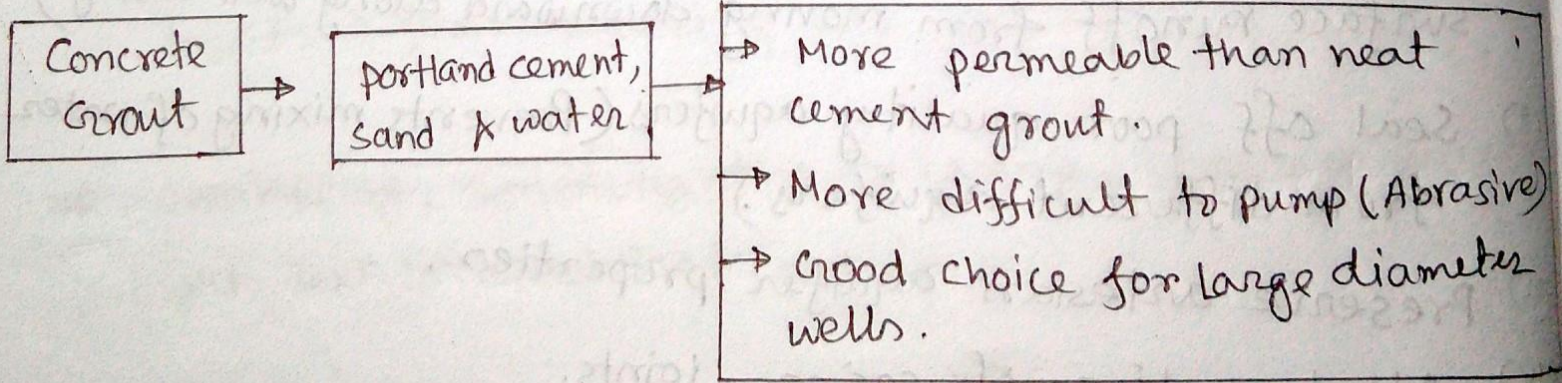 Concrete
Grout
portland cement,
sand & water
More permeable than neat
cement grout
More difficult to pump (Abrasive)
Good choice for Large diameter
wells.